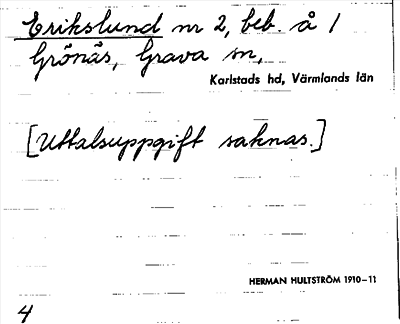 Erikslund nr 2, beb. å 1
Grönäs, Grava sn,
Karlstads hd, Värmlands län
[Uttalsuppgift saknas.]
HERMAN HULTSTRÖM 1910–11
4